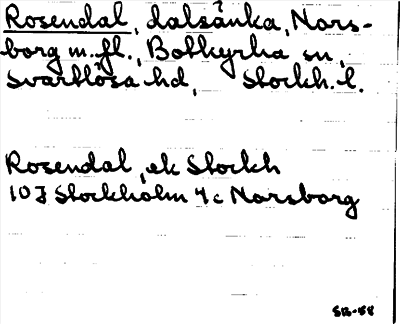 Rosendal, dalsänka, Nors-
borg m.fl., Botkyrka sn,
Svartlösa hd, Stockh. l.
Rosendal, ek Stockh
10J Stockholm 4c Norsborg
SB-58